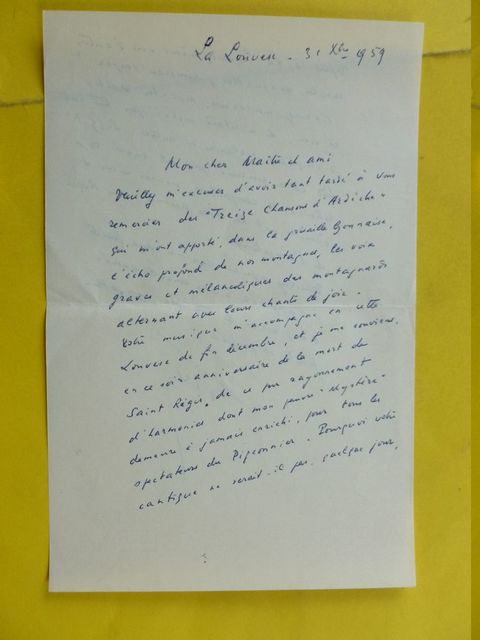 La Louvesc - 31 Xbre 1959
Mon cher Maître et ami
Veuillez m'excuser d'avoir tant tardé à vous
remercier des "Treize Chansons d'Ardèche"
qui m'ont apporté, dans la grisaille lyonnaise,
l'écho profond de nos montagnes, les voix
graves et mélancoliques des montagnards
alternant avec leurs chants de joie.
Votre musique m'accompagne en cette
Louvesc de fin décembre, et je me souviens,
en ce soir anniversaire de la mort de
Saint Régis, de ce pur rayonnement
d'harmonie dont mon pauvre "Mystère"
demeure à jamais enrichi, pour tous les
spectateurs du Pigeonnier. Pourquoi votre
cantique ne serait-il pas, quelque jour,